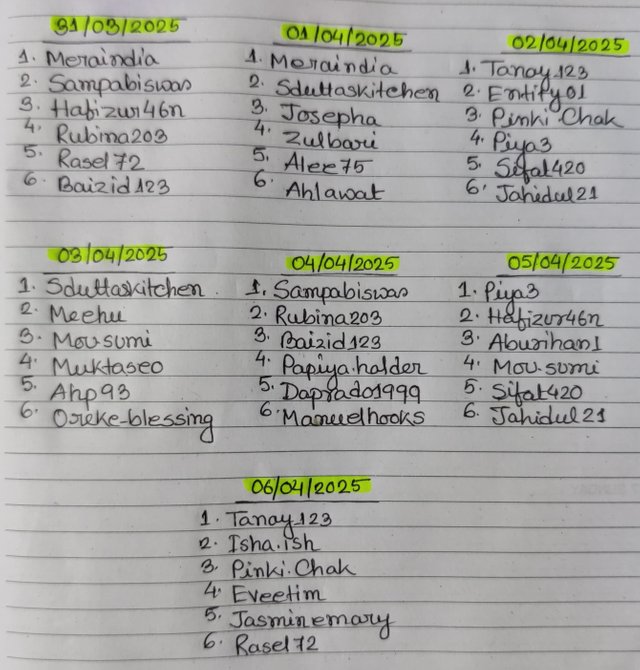 31/03/2025
1. Meraindia
2. Sampabiswas
3. Hafizur46n
4. Rubina203
5. Rasel72
6. Baizid123
01/04/2025
1. Meraindia
2. Sduttaskitchen
3. Josepha
4. Zulbari
5. Alee75
6. Ahlawat
02/04/2025
1. Tanay123
2. Entity01
3. Pinki.Chak
4. Piya3
5. Sifat420
6. Jahidul21
03/04/2025
1. Sduttaskitchen
2. Meehu
3. Mou.sumi
4. Muktaseo
5. Ahp93
6. Oreke-blessing
04/04/2025
1. Sampabiswas
2. Rubina203
3. Baizid123
4. Papiya.halder
5. Daprado1999
6. Manuelhooks
05/04/2025
1. Piya3
2. Hafizur46n
3. Aburihan1
4. Mou.sumi
5. Sifat420
6. Jahidul21
06/04/2025
1. Tanay123
2. Isha.ish
3. Pinki.Chak
4. Eveetim
5. Jasminemary
6. Rasel72